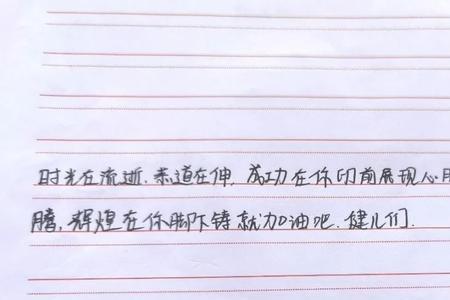 时光在流逝.柔道在伸.成功在你们前展现心
腾,辉煌在你脚下铸就加油吧.健儿们.